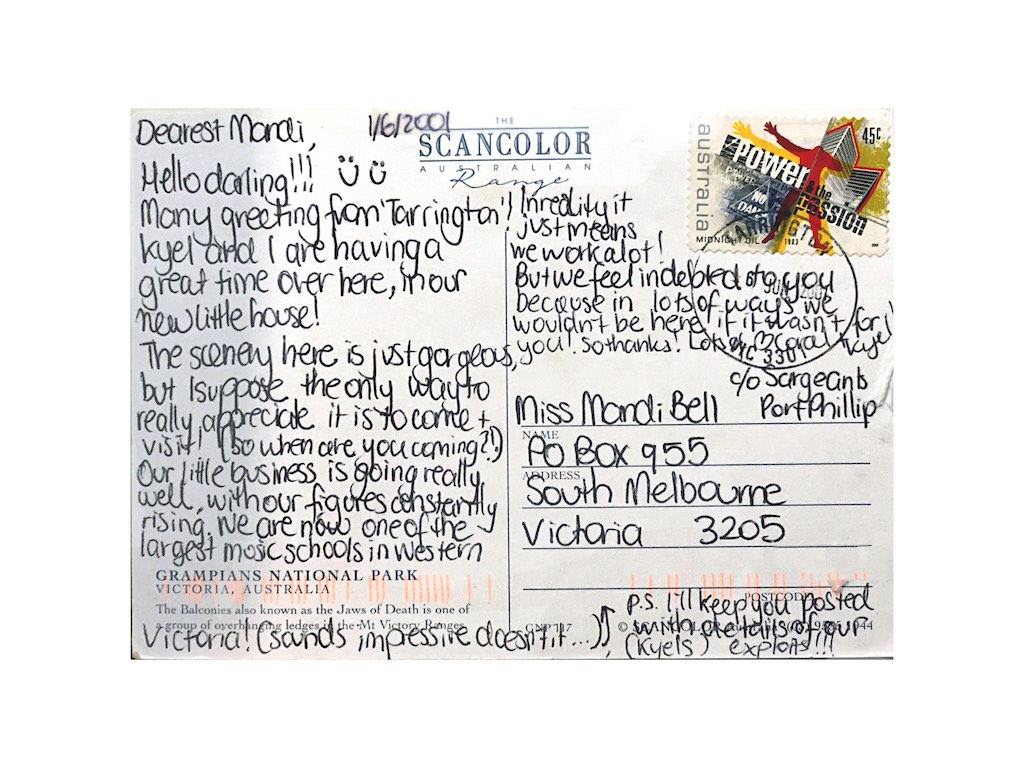 Dearest Mandi,
1/6/2001
Hello darling!!!
Many greeting from 'Tarrington'!
Kyel and I are having a
great time over here, in our
new little house!
The scenery here is just gorgeous,
but I suppose the only way to
really appreciate it is to come +
visit! (so when are you coming?!)
Our little business is going really
well, with our figures constantly
rising. We are now one of the
largest mosic schools in Western
Victoria! (sounds impressive doesn't it...)
In reality it
just means
we work alot!
But we feel indebted to you
because in lots of ways we
wouldn't be here, if it wasn't for
you! So thanks! Lots of Coral
Kyel
THE
SCANCOLOR
AUSTRALIAN
Range
australia
45c
Power
& the
Passion
NO
MIDNIGHT OIL 1983
TARRINGTON
JUN 2001
VIC 3301
c/o Sargeants
Port Phillip
Miss Mandi Bell
NAME
PO Box 955
ADDRESS
South Melbourne
Victoria 3205
POSTCODE
GRAMPIANS NATIONAL PARK
VICTORIA, AUSTRALIA
The Balconies also known as the Jaws of Death is one of
a group of overhanging ledges in the Mt Victory Ranges.
GNP 117
© SCANCOLOR
P.S. I'll keep you posted
with details of our
(Kyels) exploits!!!